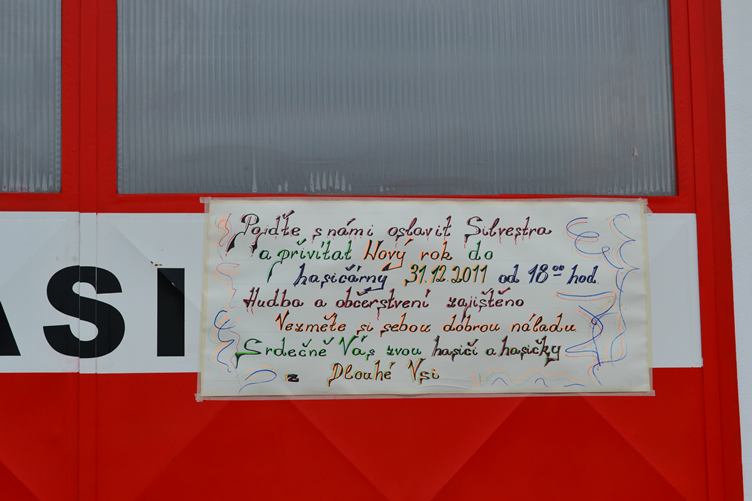 ASI
Pojďte s námi oslavit Silvestra
a přivítat Nový rok do
hasičárny 31.12.2011 od 18⁰⁰ hod.
Hudba a občerstvení zajištěno
Vezměte si sebou dobrou náladu
Srdečně Vás zvou hasiči a hasičky
z Dlouhé Vsi